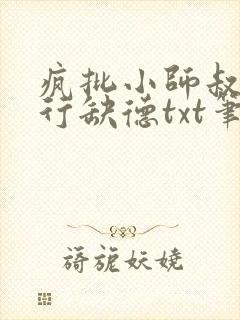 疯批小師叔
行缺德txt筆
旖旎妖嬈